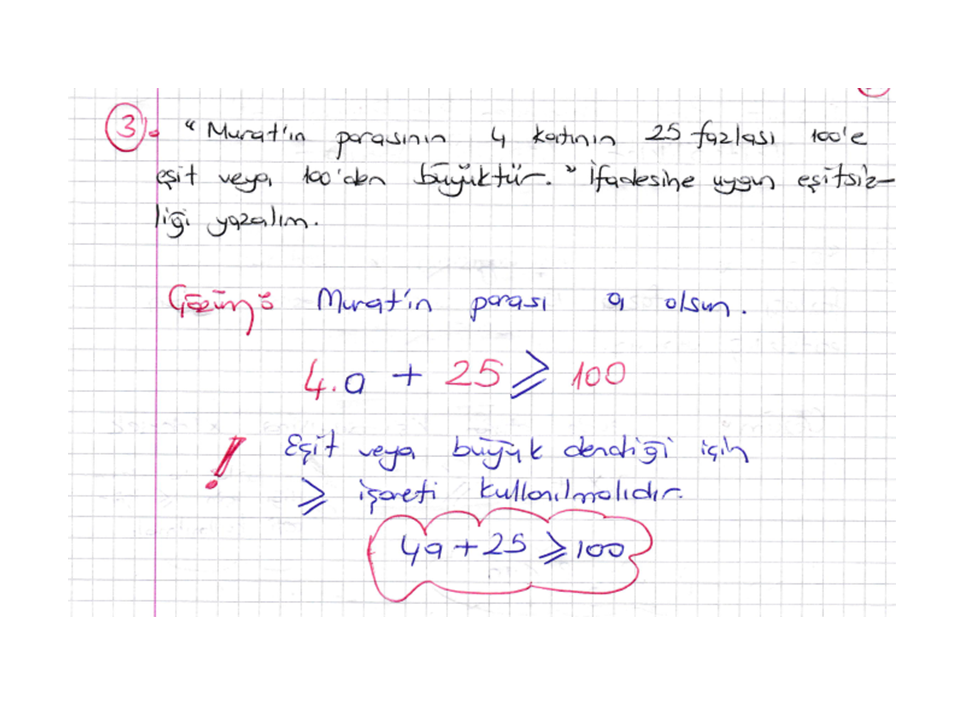 3. "Murat'ın parasının 4 katının 25 fazlası 100'e
eşit veya 100'den büyüktür." İfadesine uygun eşitsiz-
liği yazalım.
Çözüm: Murat'ın parası a olsun.
4.a + 25 ⩾ 100
! Eşit veya büyük dendiği için
⩾ işareti kullanılmalıdır.
4a + 25 ⩾ 100